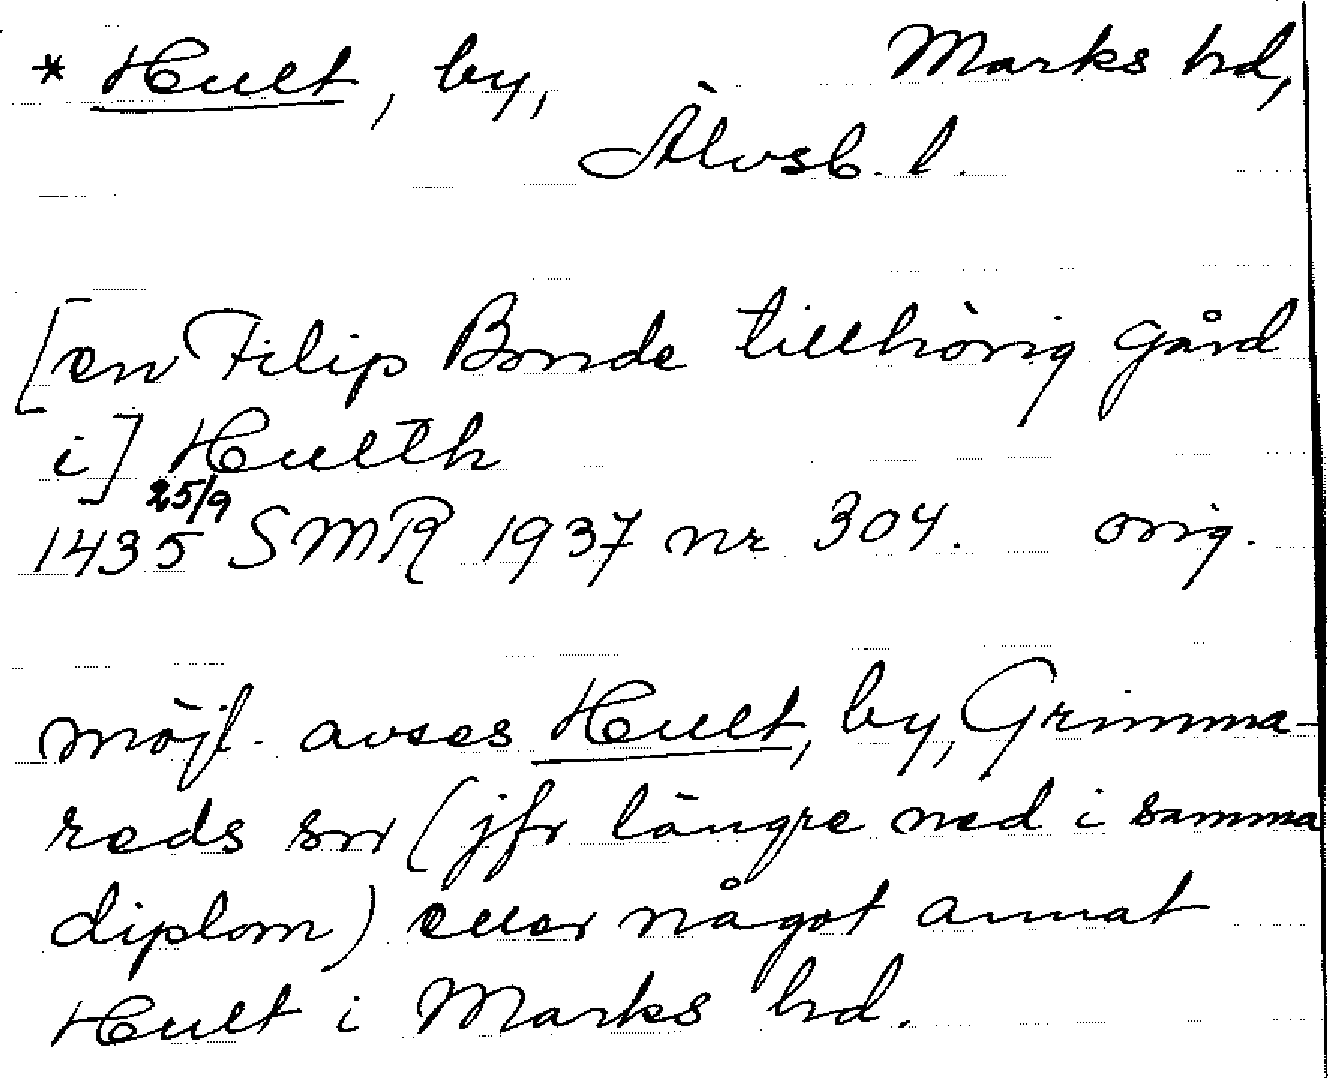 * Hult, by, Marks hd,
Älvsb. l.
[en Filip Bonde tillhörig gård
i] Hulth
1435 25/9 SMR 1937 nr 304. orig.
möjl. avses Hult, by, Grimma-
reds sn (jfr längre ned i samma
diplom) eller något annat
Hult i Marks hd.